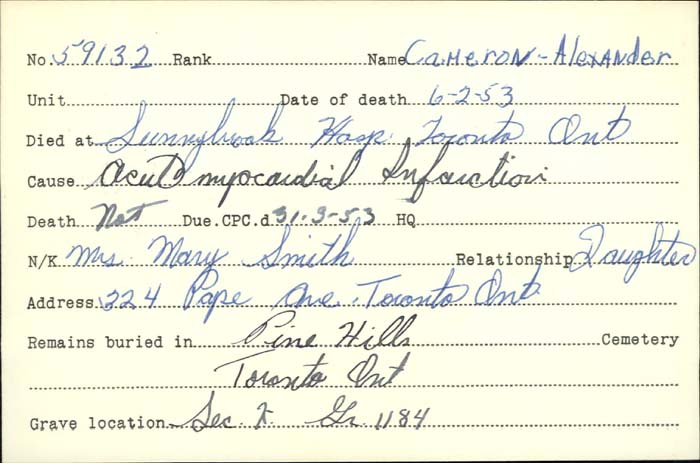 No. 59132 Rank Name Cameron - Alexander
Unit Date of death 6-2-53
Died at Sunnybrook Hosp. Toronto Ont
Cause Acute myocardial Infarction
Death Not Due. CPC.d 31-3-53 HQ
N/K Mrs. Mary Smith Relationship Daughter
Address 224 Pape Ave. Toronto Ont.
Remains buried in Pine Hills Cemetery
Toronto Ont
Grave location Sec. K Gr. 1184